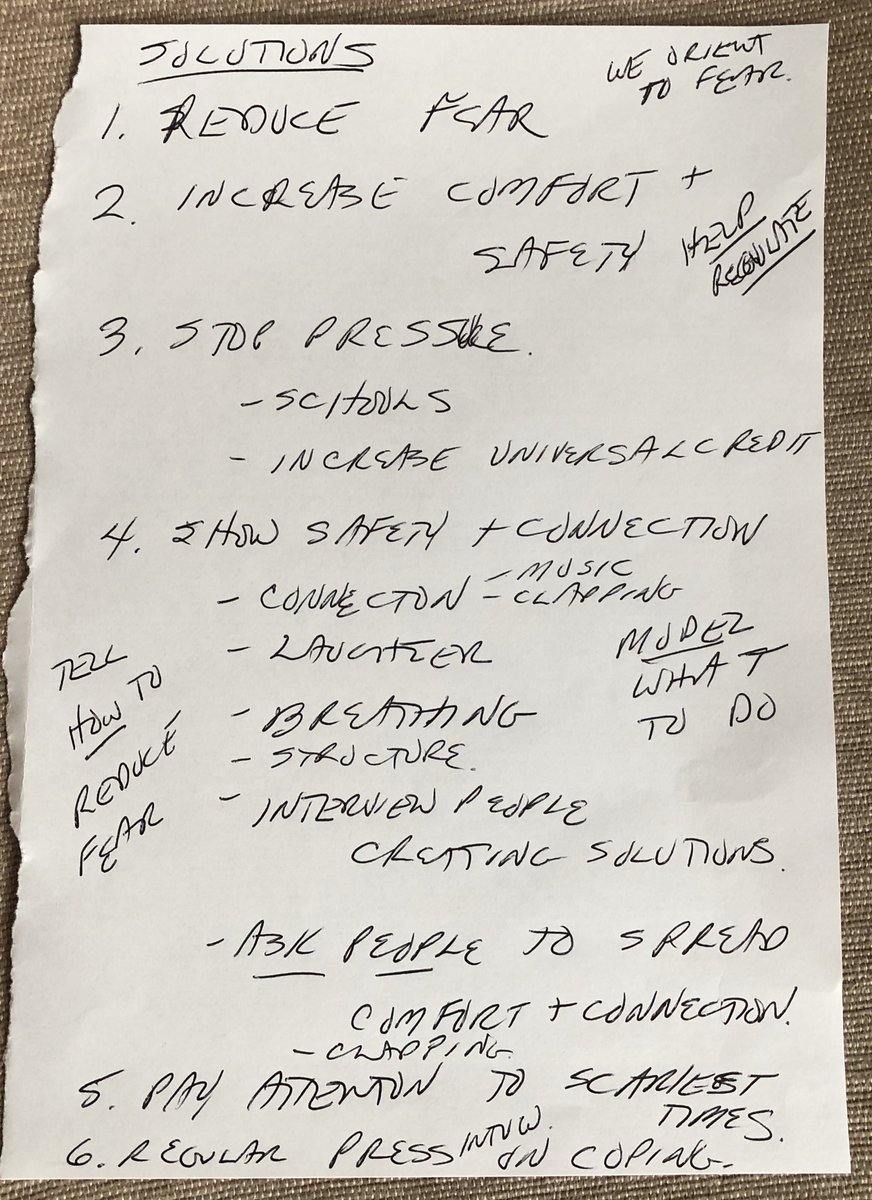 SOLUTIONS
WE ORIENT
TO FEAR.
1. REDUCE FEAR
2. INCREASE COMFORT +
SAFETY
HELP
REGULATE
3. STOP PRESSURE.
- SCHOOLS
- INCREASE UNIVERSAL CREDIT
4. SHOW SAFETY + CONNECTION
- CONNECTON - MUSIC
- CLAPPING
- LAUGHTER
MODEL
WHAT
TO DO
TELL
HOW TO
REDUCE
FEAR
- BREATHING
- STRUCTURE.
- INTERVIEW PEOPLE
CREATING SOLUTIONS.
- ASK PEOPLE TO SPREAD
COMFORT + CONNECTION.
- CLAPPING.
5. PAY ATTENTON TO SCARIEST
TIMES.
6. REGULAR PRESS INTVW. ON COPING.